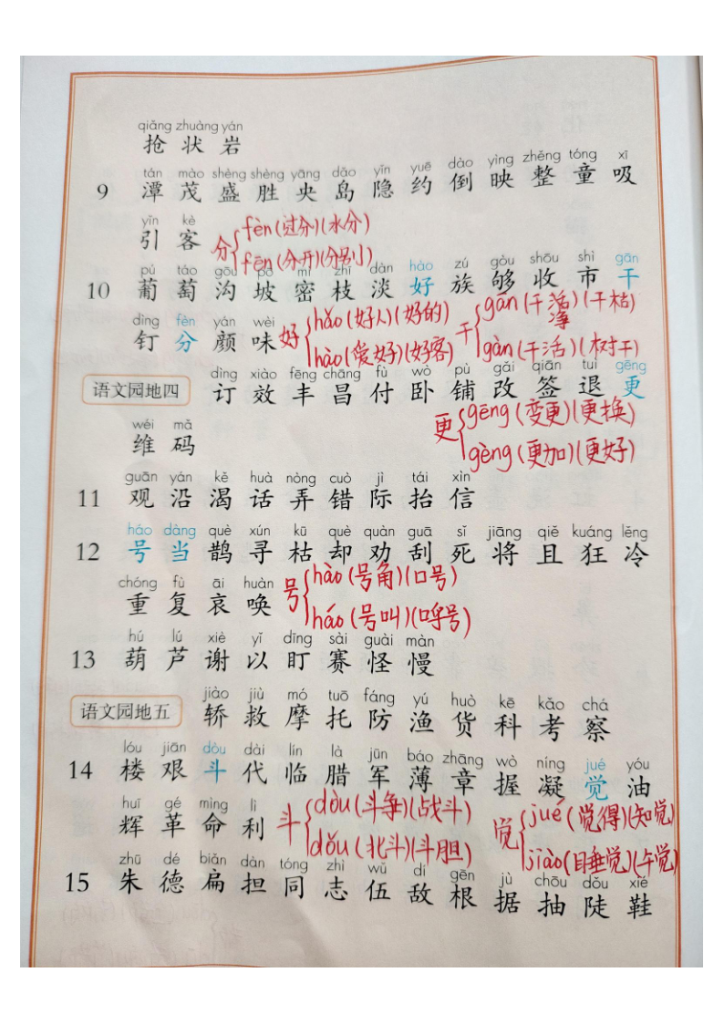 qiǎng zhuàng yán
抢 状 岩
tán mào shèng shèng yāng dǎo yǐn yuē dào yìng zhěng tóng xī
9 潭 茂 盛 胜 央 岛 隐 约 倒 映 整 童 吸
yǐn kè
引 客
分 fèn(过分)(水分)
fēn(分开)(分别)
pú táo gōu pō mì zhī dàn hào zú gòu shōu shì gān
10 葡 萄 沟 坡 密 枝 淡 好 族 够 收 市 干
dìng fèn yán wèi
钉 分 颜 味
好 hǎo(好人)(好的)
hào(爱好)(好客)
干 gān(干活)(干枯)
薄
gàn(干活)(树干)
语文园地四
dìng xiào fēng chāng fù wò pù gǎi qiān tuì gēng
订 效 丰 昌 付 卧 铺 改 签 退 更
wéi mǎ
维 码
更 gēng(变更)(更换)
gèng(更加)(更好)
guān yán kě huà nòng cuò jì tái xìn
11 观 沿 渴 话 弄 错 际 抬 信
háo dàng què xún kū què quàn guā sǐ jiāng qiě kuáng lěng
12 号 当 鹊 寻 枯 却 劝 刮 死 将 且 狂 冷
chóng fù āi huàn
重 复 哀 唤
号 hào(号角)(口号)
háo(号叫)(呼号)
hú lú xiè yǐ dīng sài guài màn
13 葫 芦 谢 以 盯 赛 怪 慢
语文园地五
jiào jiù mó tuō fáng yú huò kē kǎo chá
轿 救 摩 托 防 渔 货 科 考 察
lóu jiān dòu dài lín là jūn báo zhāng wò níng jué yóu
14 楼 艰 斗 代 临 腊 军 薄 章 握 凝 觉 油
huī gé mìng lì
辉 革 命 利
斗 dòu(斗争)(战斗)
dǒu(北斗)(斗胆)
觉 jué(觉得)(知觉)
jiào(睡觉)(午觉)
zhū dé biǎn dàn tóng zhì wǔ dí gēn jù chōu dǒu xié
15 朱 德 扁 担 同 志 伍 敌 根 据 抽 陡 鞋